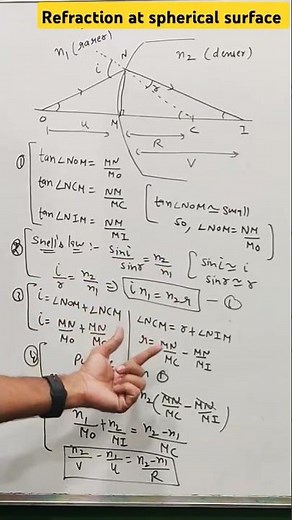 Refraction at spherical surface
n₁ (rarer)
N
n₂ (denser)
i
r
O
M
C
I
u
R
V
① tan∠NOM = MN/MO
tan∠NCM = NM/MC
tan∠NIM = NM/MI
tan∠NOM ≃ small
so, ∠NOM = NM/MO
② Snell's law :- sini/sinr = n₂/n₁
sini ≃ i
sinr ≃ r
i/r = n₂/n₁ ⇒ i n₁ = n₂r - ①
③ i = ∠NOM + ∠NCM
i = MN/MO + MN/
∠NCM = r + ∠NIM
r = MN/MC - MN/MI
④ Pu
n ①
n₂(MN/MC - MN/MI)
n₁/MO + n₂/MI = n₂-n₁/MC
n₂/v - n₁/u = n₂-n₁/R